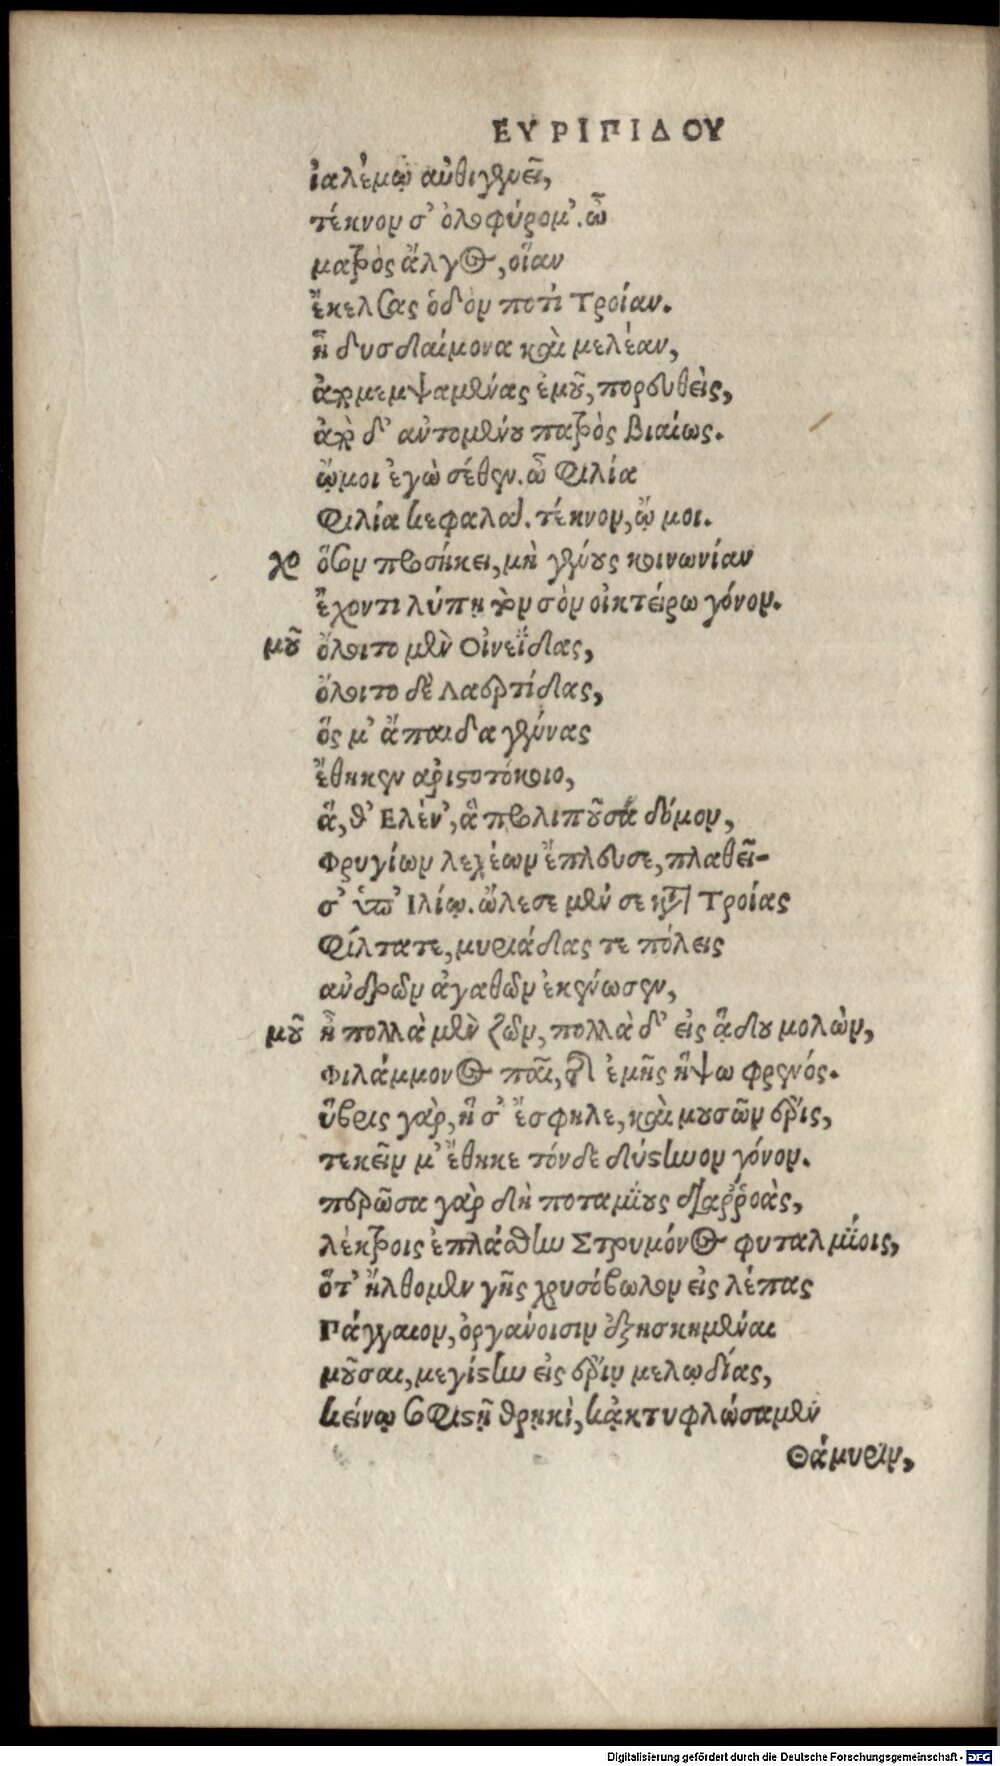 ΕΥΡΙΠΙΔΟΥ
ἰαλέμῳ αὐθιγενεῖ,
τέκνον σ' ὀλοφύρομ'. ὦ
ματρὸς ἄλγος, οἵαν
ἔκελσας ὁδὸν ποτὶ Τροίαν.
ἦ δυσδαίμονα καὶ μελέαν,
ἀπομεμψαμένας ἐμοῦ, πορευθεὶς,
ἀπὸ δ' αὐτομένου πατρὸς βιαίως.
ᾤμοι ἐγὼ σέθεν. ὦ φιλία
φιλία κεφαλά. τέκνον, ᾤ μοι.
χο ὅσον προσήκει, μὴ γένους κοινωνίαν
ἔχοντι λύπῃ τὸν σὸν οἰκτείρω γόνον.
μοῦ ὄλοιτο μὲν Οἰνεΐδας,
ὄλοιτο δὲ Λαερτίδας,
ὅς μ' ἄπαιδα γέννας
ἔθηκεν αριστοτόκοιο,
ἅ, θ' Ελέν', ἃ προλιποῦσα δόμον,
Φρυγίων λεχέων ἔπλευσε, πλαθεῖ-
σ' ὑπ' Ιλίῳ. ὤλεσε μέν σε κατὰ Τροίας
φίλτατε, μυριάδας τε πόλεις
ανδρῶν ἀγαθῶν ἐκένωσεν,
μοῦ ἦ πολλὰ μὲν ζῶν, πολλὰ δ' εἰς ᾅδου μολὼν,
Φιλάμμονος παῖ, τῆς ἐμῆς ἥψω φρενός.
ὕβρις γὰρ, ἥ σ' ἔσφηλε, καὶ μουσῶν ἔρις,
τεκεῖν μ' ἔθηκε τόνδε δύστηνον γόνον.
περῶσα γὰρ δὴ ποταμΐους διαῤῥοὰς,
λέκτροις ἐπλάθην Στρυμόνος φυταλμΐοις,
ὅτ' ἤλθομεν γῆς χρυσόβωλον εἰς λέπας
Πάγγαιον, ὀργάνοισιν ἐξησκημέναι
μοῦσαι, μεγίστην εἰς ἔριν μελῳδίας,
κείνῳ σοφιστῇ θρῃκὶ, κᾀκτυφλώσαμεν
Θάμυριν,
Digitalisierung gefördert durch die Deutsche Forschungsgemeinschaft - DFG